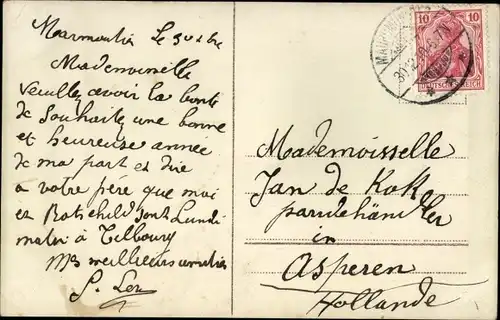 Marmoutier le 30 xbre
Mademoiselle
Veuillez avoir la bonté
de Souhaite une bonne
et heureuse année
de ma part et dire
a votre père que moi
et Rotschild sont Lundi
matin à Tilbourg
Mes meilleurs amitiés
S. Levy
10 10
DEUTSCHES REICH
Mademoisselle
Jan de Kok
paardehändler
in
Asperen
Hollande